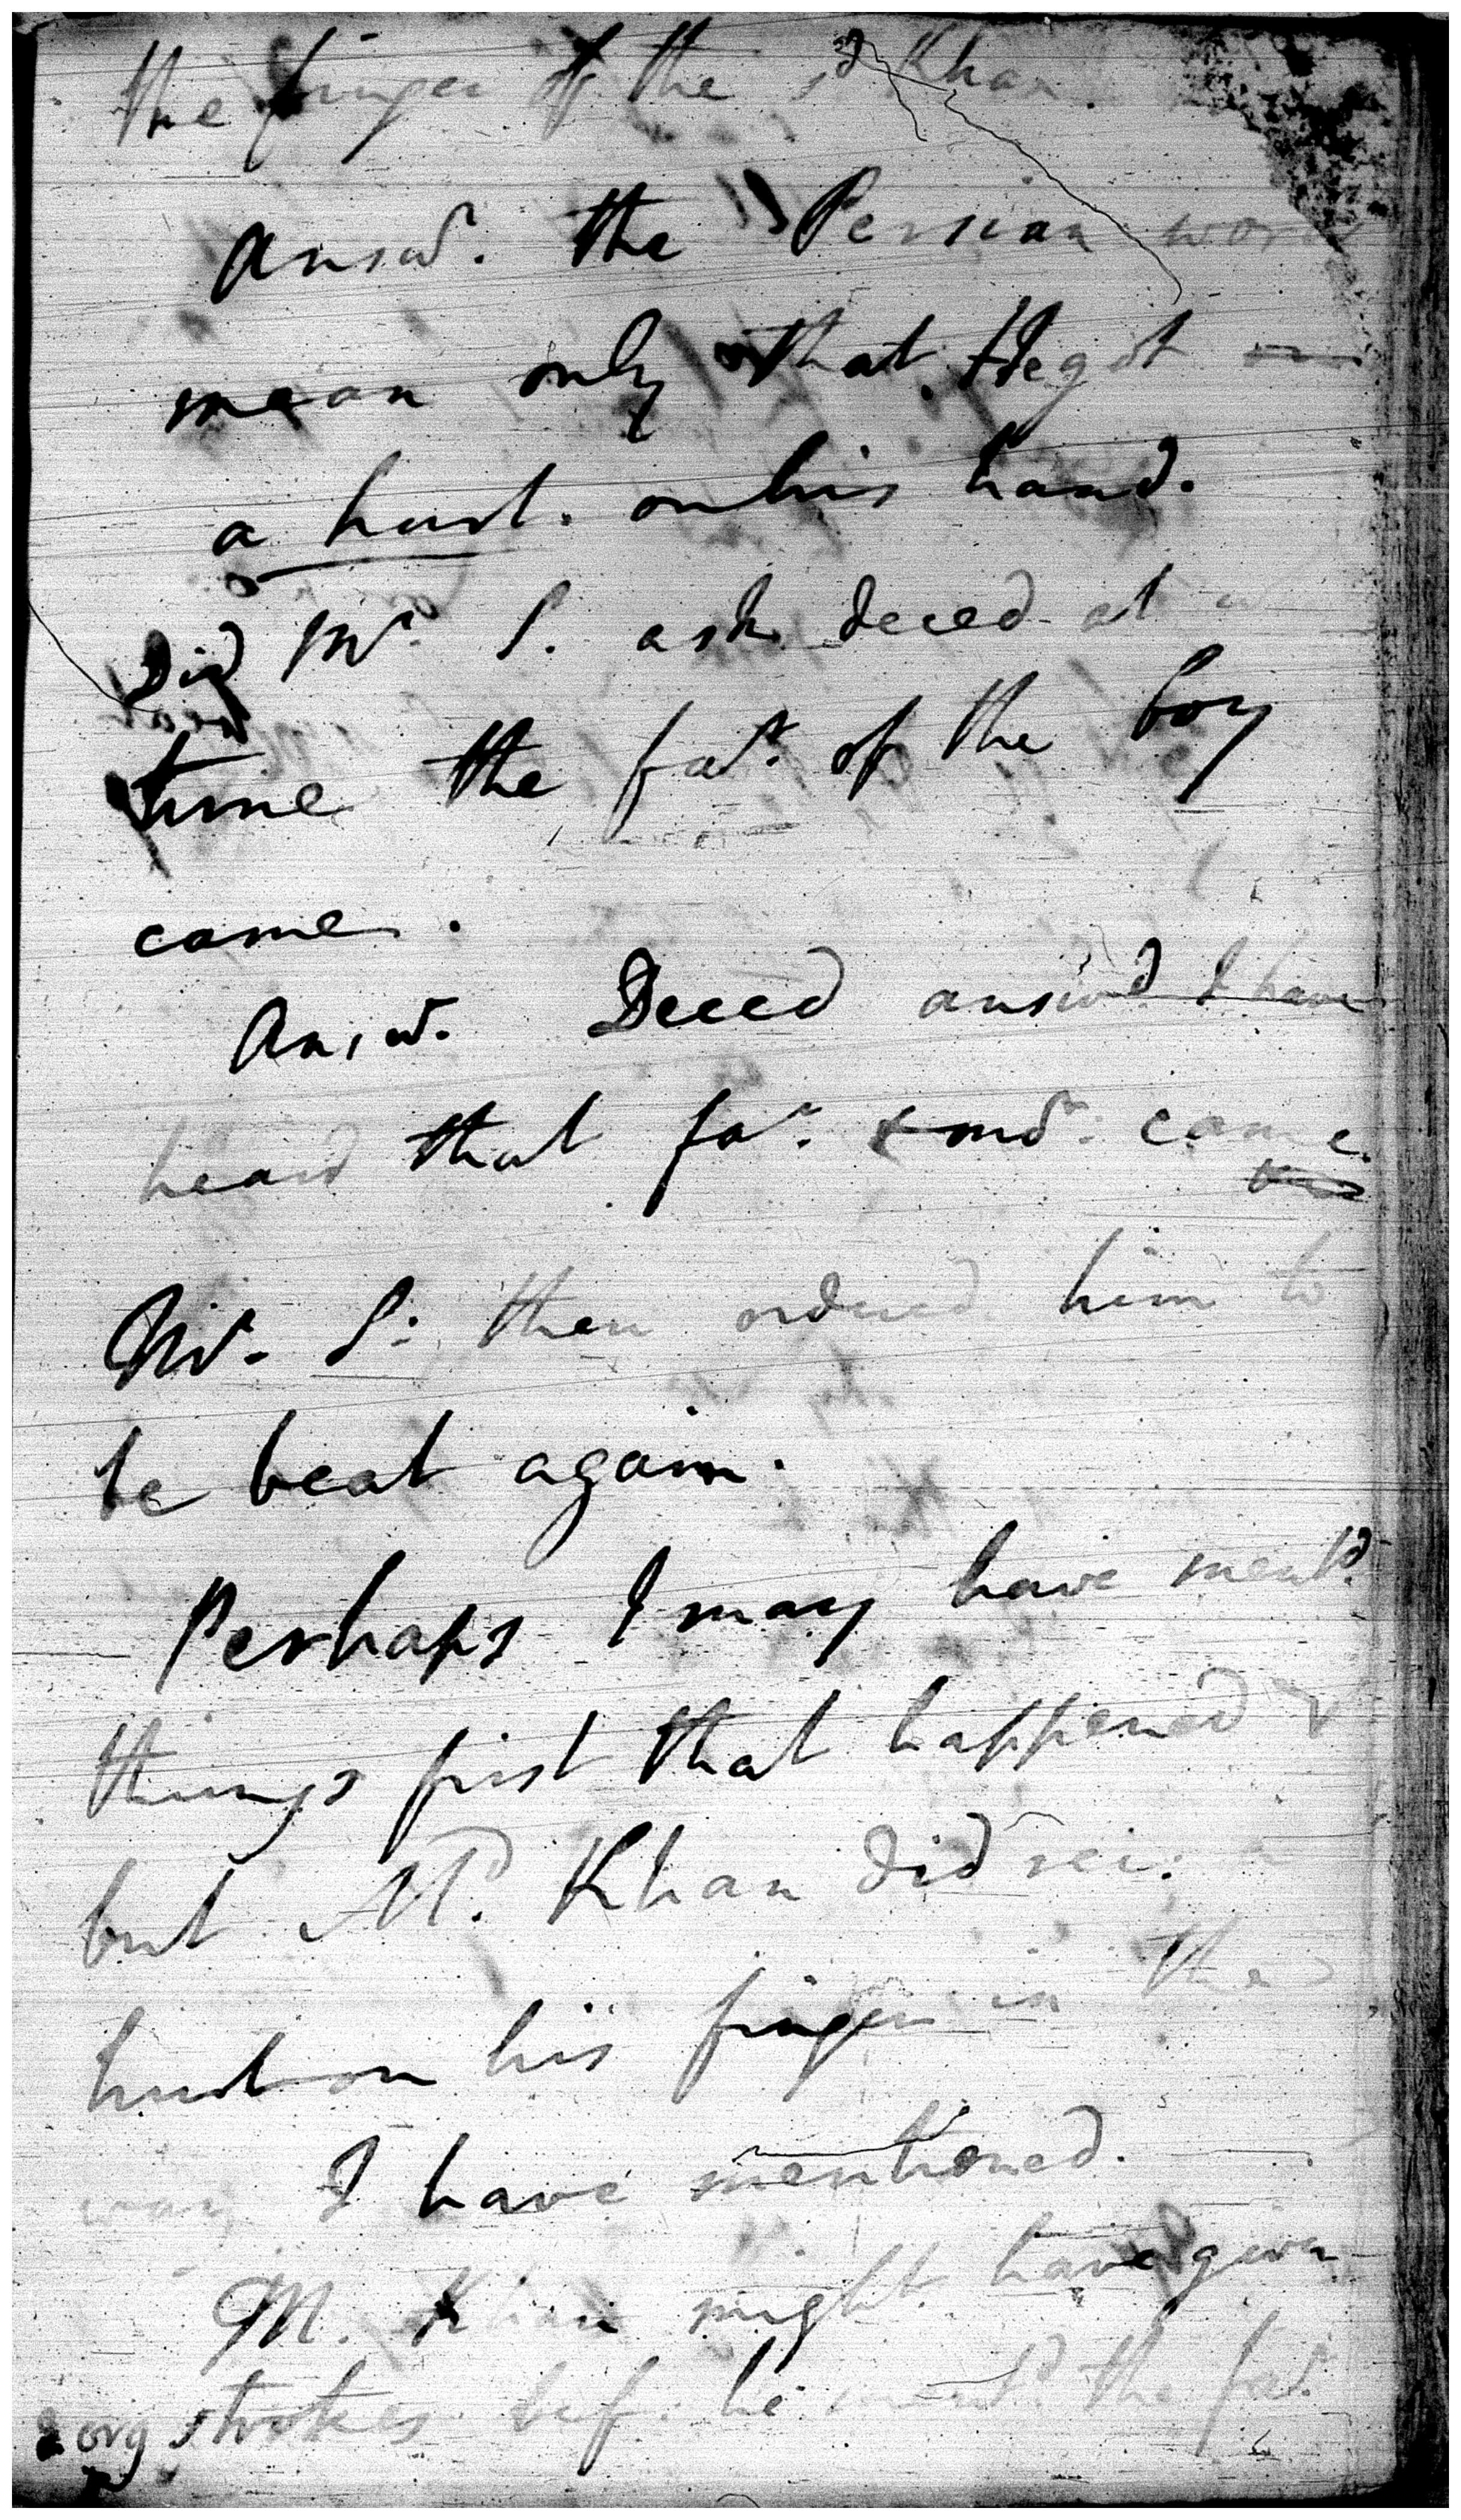 the finger of the sd Khan
Answr. the Persian word
mean only that He got
a hurt. on his hand.
Did Mr. S. ask deced at
time the far. of the boy
came.
Answ. Deced answd I have
heard that far. & mor. came.
Mr. S. then ordered him to
be beat again.
Perhaps I may have mentd.
things first that happened
but Md. Khan did rec.
hurt on his finger in the
way I have mentioned.
M. Khan might have given
2 or 3 strokes bef. he mentd the far.